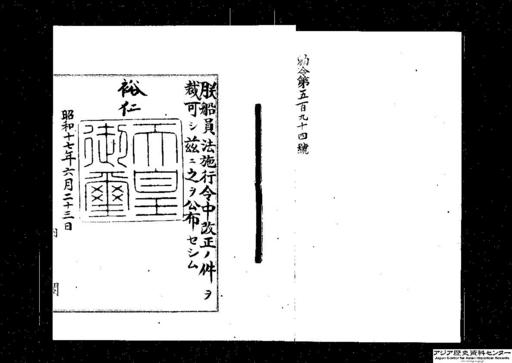 勅令第五百九十四號
朕船員法施行令中改正ノ件ヲ
裁可シ茲ニ之ヲ公布セシム
裕仁
天皇
御璽
昭和十七年六月二十三日
内
閣
アジア歴史資料センター
Japan Center for Asian Historical Records